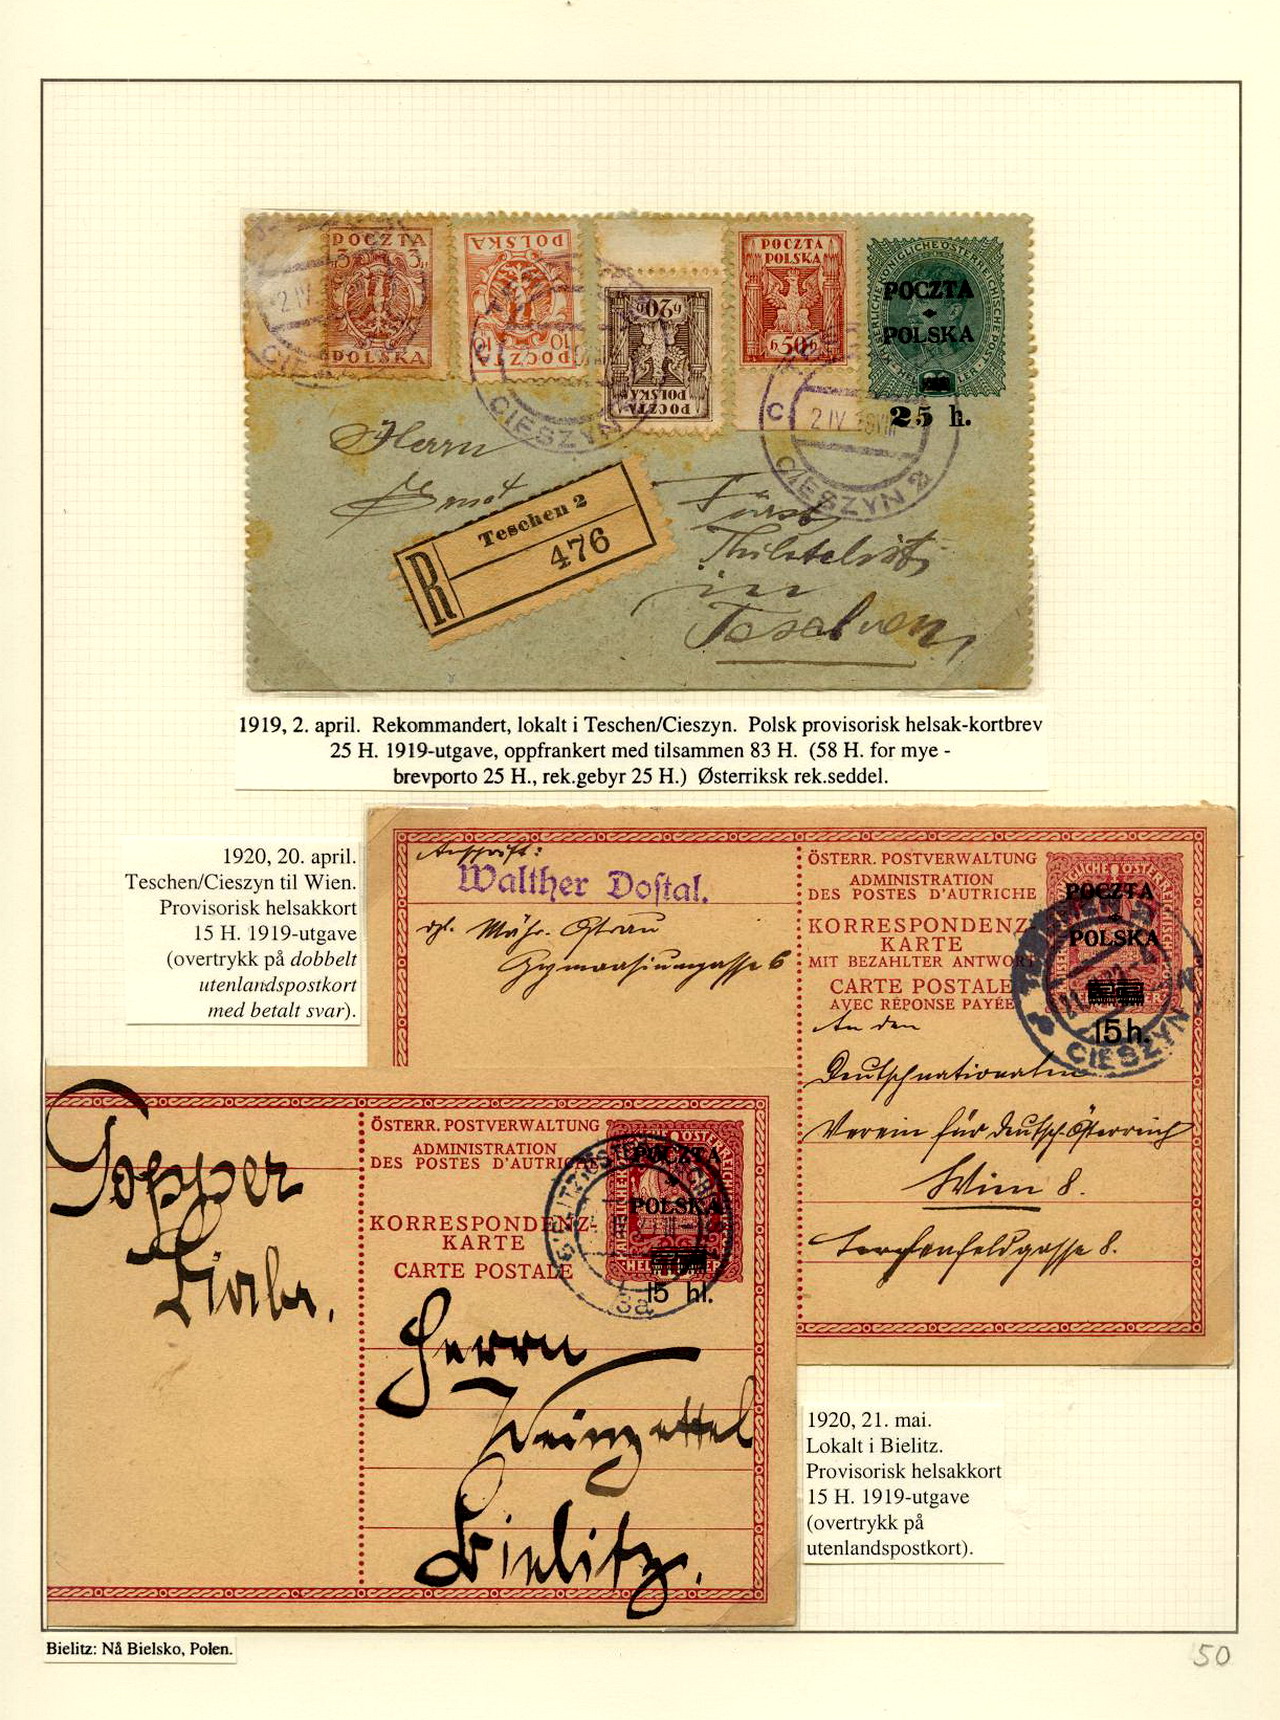 POCZTA
3 3
POLSKA
POLSKA
10 10
POCZTA
20
POCZTA
POLSKA
POCZTA
POLSKA
50
KAISERLICHE KÖNIGLICHE ÖSTERREICHISCHE POST
POCZTA
POLSKA
25 h.
2 IV
CIESZYN
CIESZYN
2 IV
CIESZYN 2
Herrn
Ernst Fürst
Philatelist
in
Teschen
R Teschen 2
476
1919, 2. april. Rekommandert, lokalt i Teschen/Cieszyn. Polsk provisorisk helsak-kortbrev
25 H. 1919-utgave, oppfrankert med tilsammen 83 H. (58 H. for mye -
brevporto 25 H., rek.gebyr 25 H.) Østerriksk rek.seddel.
1920, 20. april.
Teschen/Cieszyn til Wien.
Provisorisk helsakkort
15 H. 1919-utgave
(overtrykk på dobbelt
utenlandspostkort
med betalt svar).
Anschrift:
Walther Dostal.
Mähr. Ostrau
Gymnasiumgasse 6
ÖSTERR. POSTVERWALTUNG
ADMINISTRATION
DES POSTES D'AUTRICHE
KORRESPONDENZ-
KARTE
MIT BEZAHLTER ANTWORT
CARTE POSTALE
AVEC RÉPONSE PAYÉE
POCZTA
POLSKA
15 h.
CIESZYN
An den
Deutschnationalen
Verein für Deutsch-Österreich
Wien 8.
Lerchenfeldgasse 8.
Popper
ÖSTERR. POSTVERWALTUNG
ADMINISTRATION
DES POSTES D'AUTRICHE
KORRESPONDENZ-
KARTE
CARTE POSTALE
POCZTA
POLSKA
15 hl.
3a
Herrn
Weinzettel
Bielitz.
1920, 21. mai.
Lokalt i Bielitz.
Provisorisk helsakkort
15 H. 1919-utgave
(overtrykk på
utenlandspostkort).
Bielitz: Nå Bielsko, Polen.
50